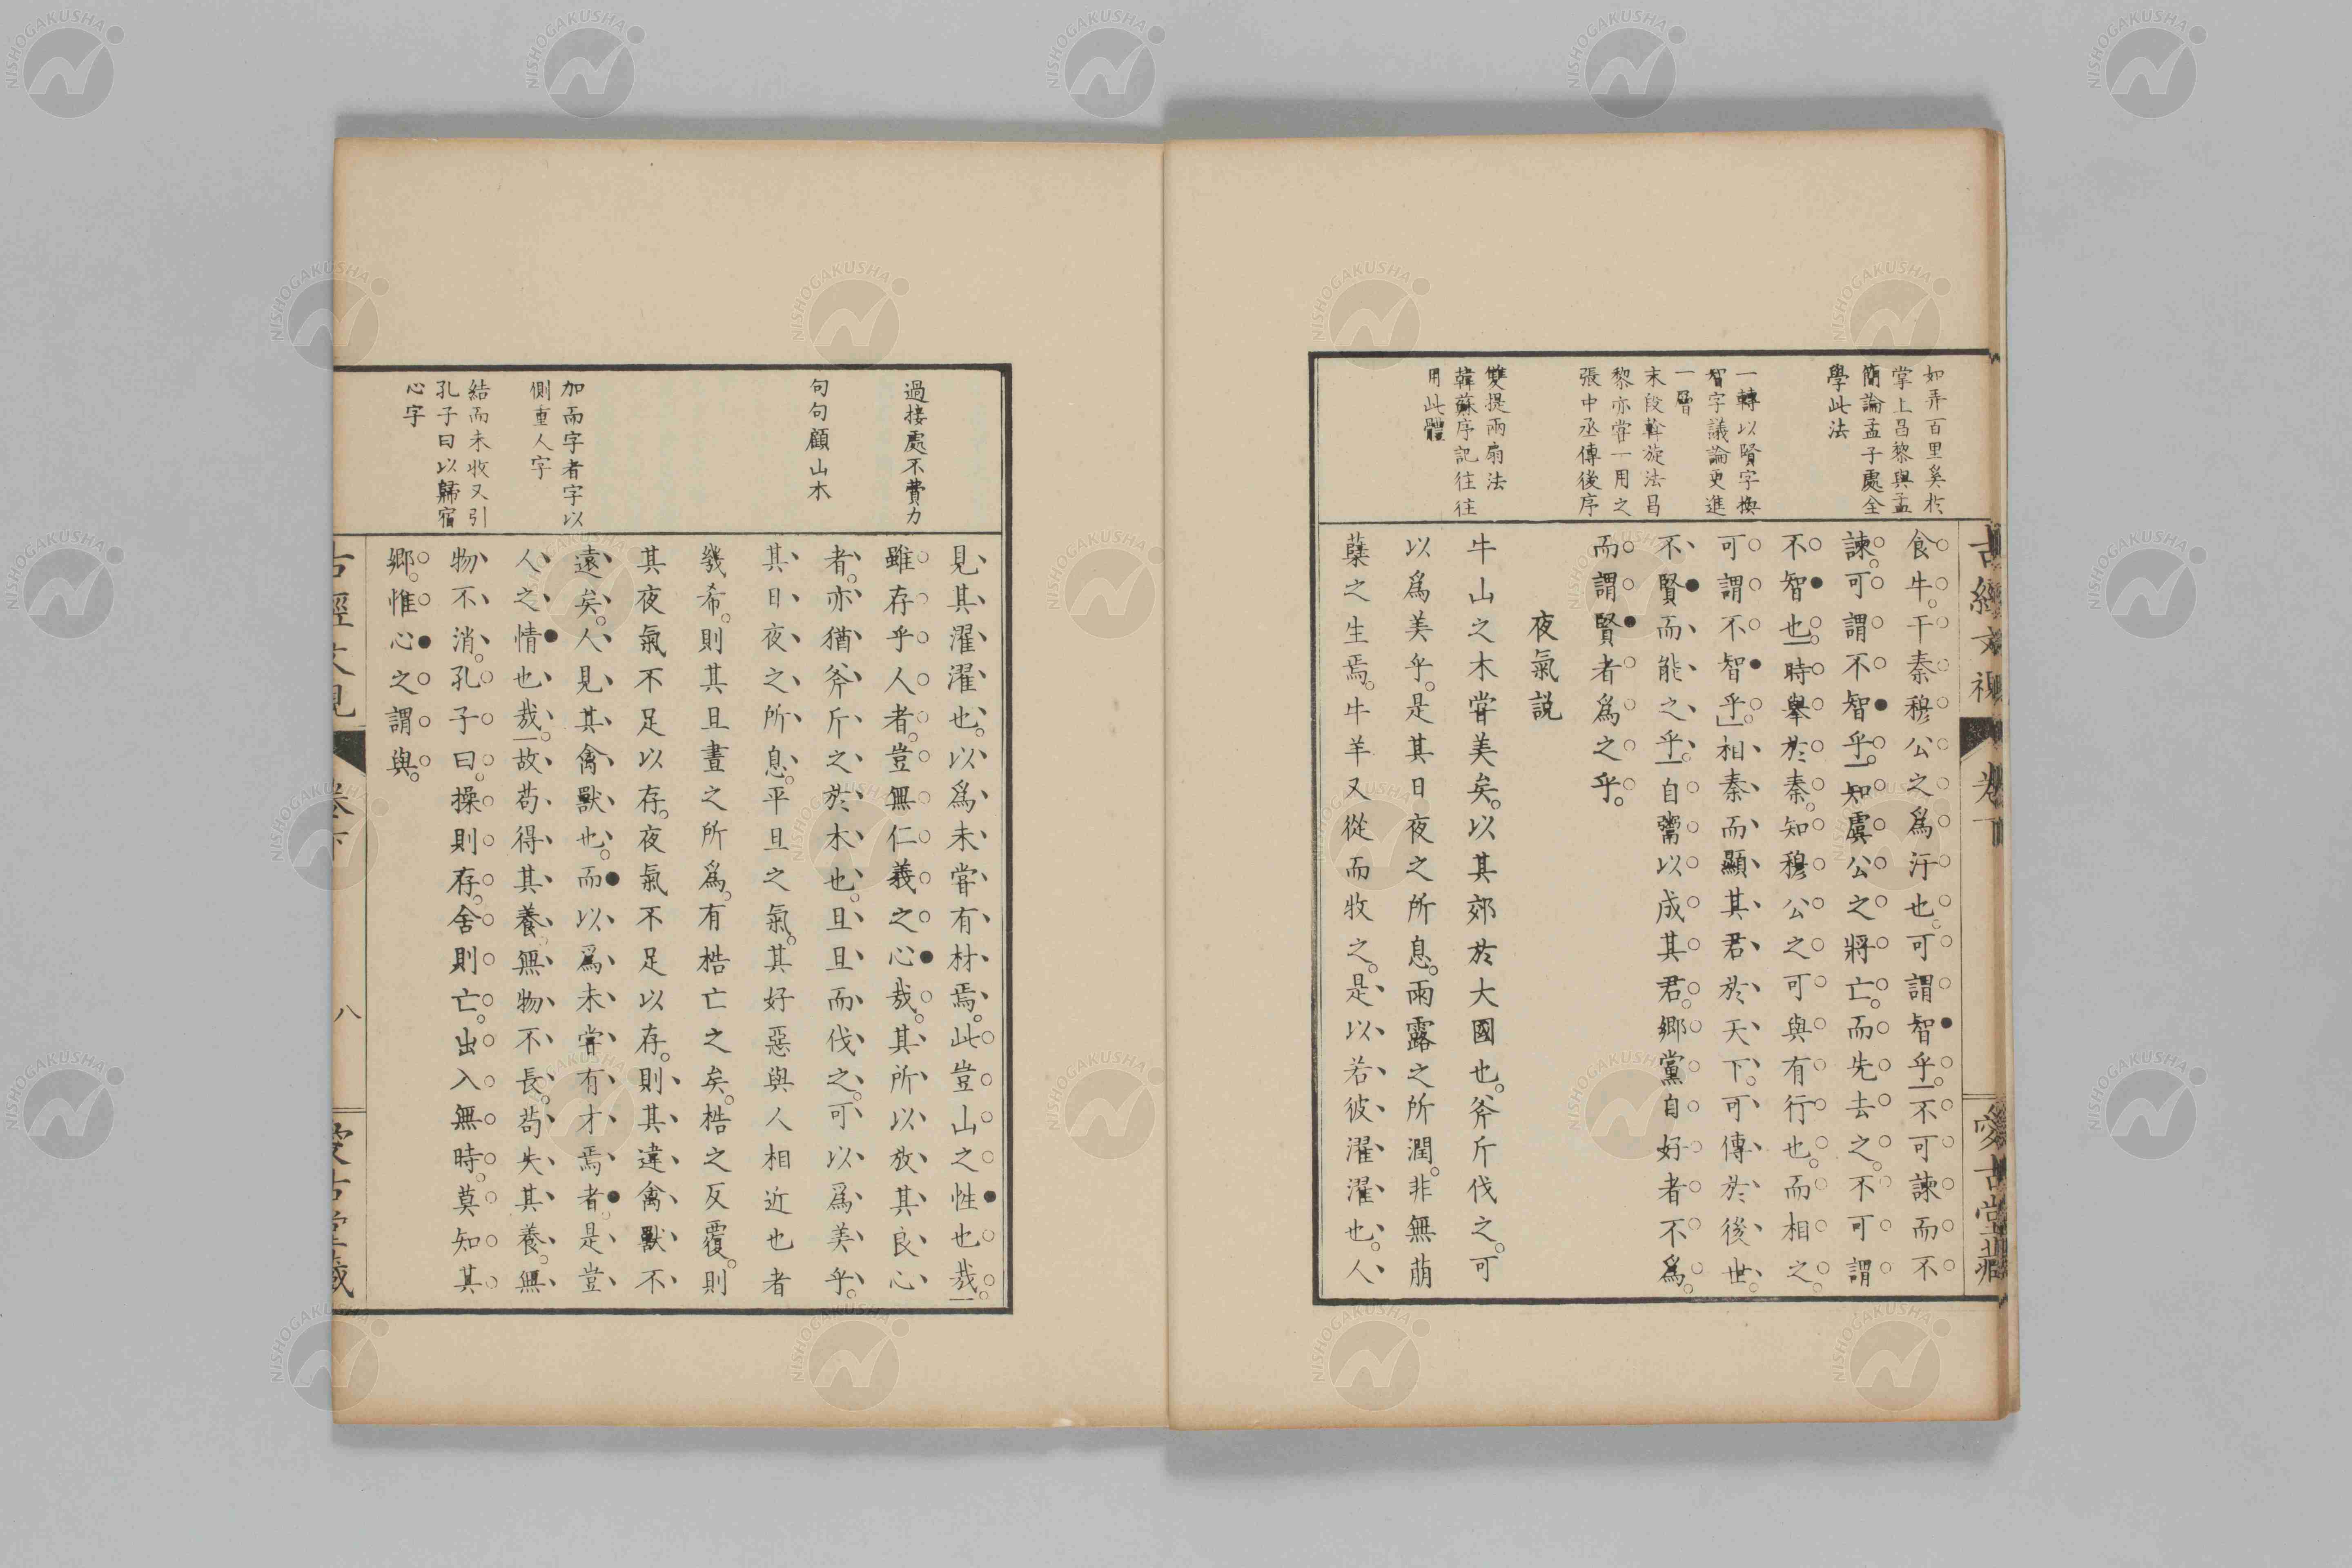 如弄百里奚於
掌上昌黎與孟
簡論孟子處全
學此法
一轉以賢字換
智字議論更進
一層
末段斡旋法昌
黎亦嘗一用之
張中丞傳後序
雙提兩扇法
韓蘇序記往往
用此體
食牛。干秦穆公之爲汙也。可謂智乎。不可諫而不
諫。可謂不智乎。知虞公之將亡。而先去之。不可謂
不智也。時舉於秦。知穆公之可與有行也。而相之。
可謂不智乎。相秦而顯其君於天下。可傳於後世。
不賢而能之乎。自鬻以成其君。鄉黨自好者不爲。
而謂賢者爲之乎。
夜氣説
牛山之木嘗美矣。以其郊於大國也。斧斤伐之。可
以爲美乎。是其日夜之所息。雨露之所潤。非無萠
蘖之生焉。牛羊又從而牧之。是以若彼濯濯也。人
卷下
愛古堂藏
過接處不費力
句句顧山木
加而字者字以
側重人字
結而未收又引
孔子曰以歸宿
心字
見其濯濯也。以爲未嘗有材焉。此豈山之性也哉。
雖存乎人者。豈無仁義之心哉。其所以放其良心
者。亦猶斧斤之於木也。旦旦而伐之。可以爲美乎。
其日夜之所息。平旦之氣。其好惡與人相近也者
幾希。則其旦晝之所爲。有梏亡之矣。梏之反覆。則
其夜氣不足以存。夜氣不足以存。則其違禽獸不
遠矣。人見其禽獸也。而以爲未嘗有才焉者。是豈
人之情也哉。故苟得其養。無物不長。苟失其養。無
物不消。孔子曰。操則存。舍則亡。出入無時。莫知其
鄉。惟心之謂與。
八
NISHOGAKUSHA